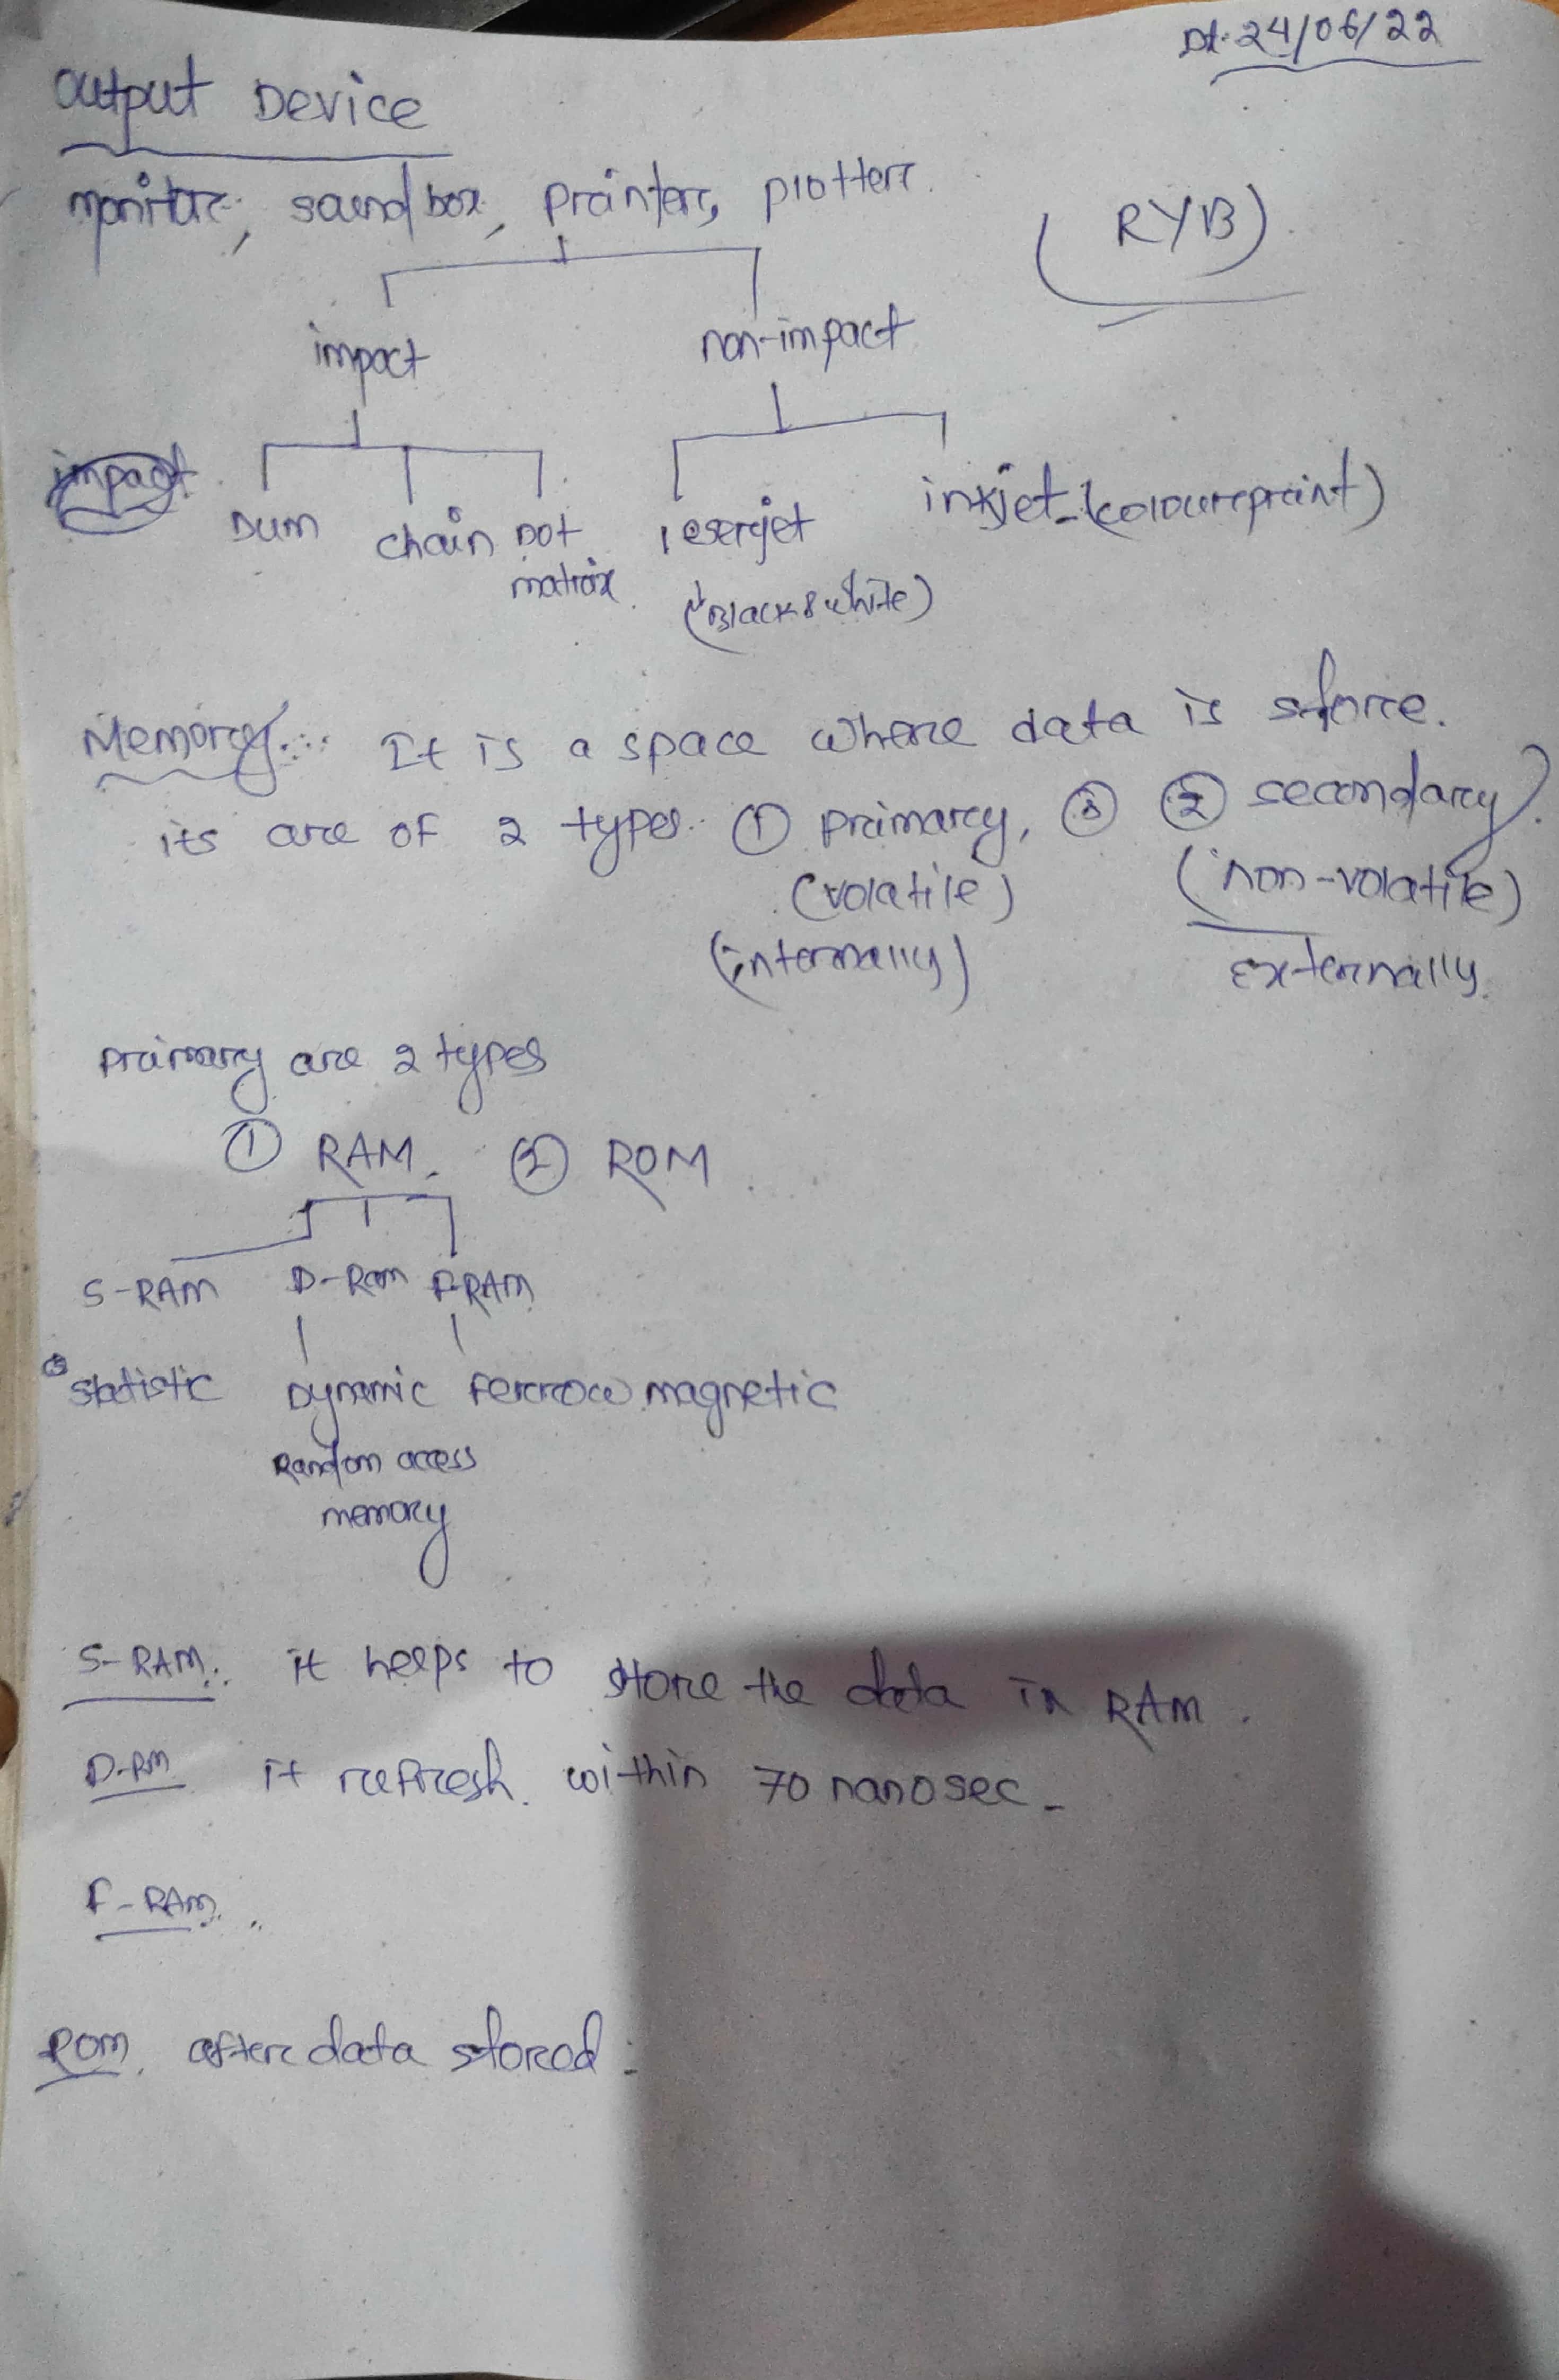 Dt: 24/06/22
output Device
monitor, sound box, Printers, plotter.
(RYB)
impact non-impact
impact
Dum chain Dot matrix leserjet inkjet - (colour print)
(Black & white)
Memory: It is a space where data is store.
its are of 2 types. ① primary, ③ ② secondary.
(volatile) (non-volatile)
(internally) Externally.
primary are 2 types
① RAM. ② ROM.
S-RAM D-Ram F-RAM
statistic Dynamic ferrow magnetic
Random access
memory
S-RAM: it helps to store the data in RAM.
D-RM it refresh within 70 nano sec -
F-RAM:
Rom. after data stored: